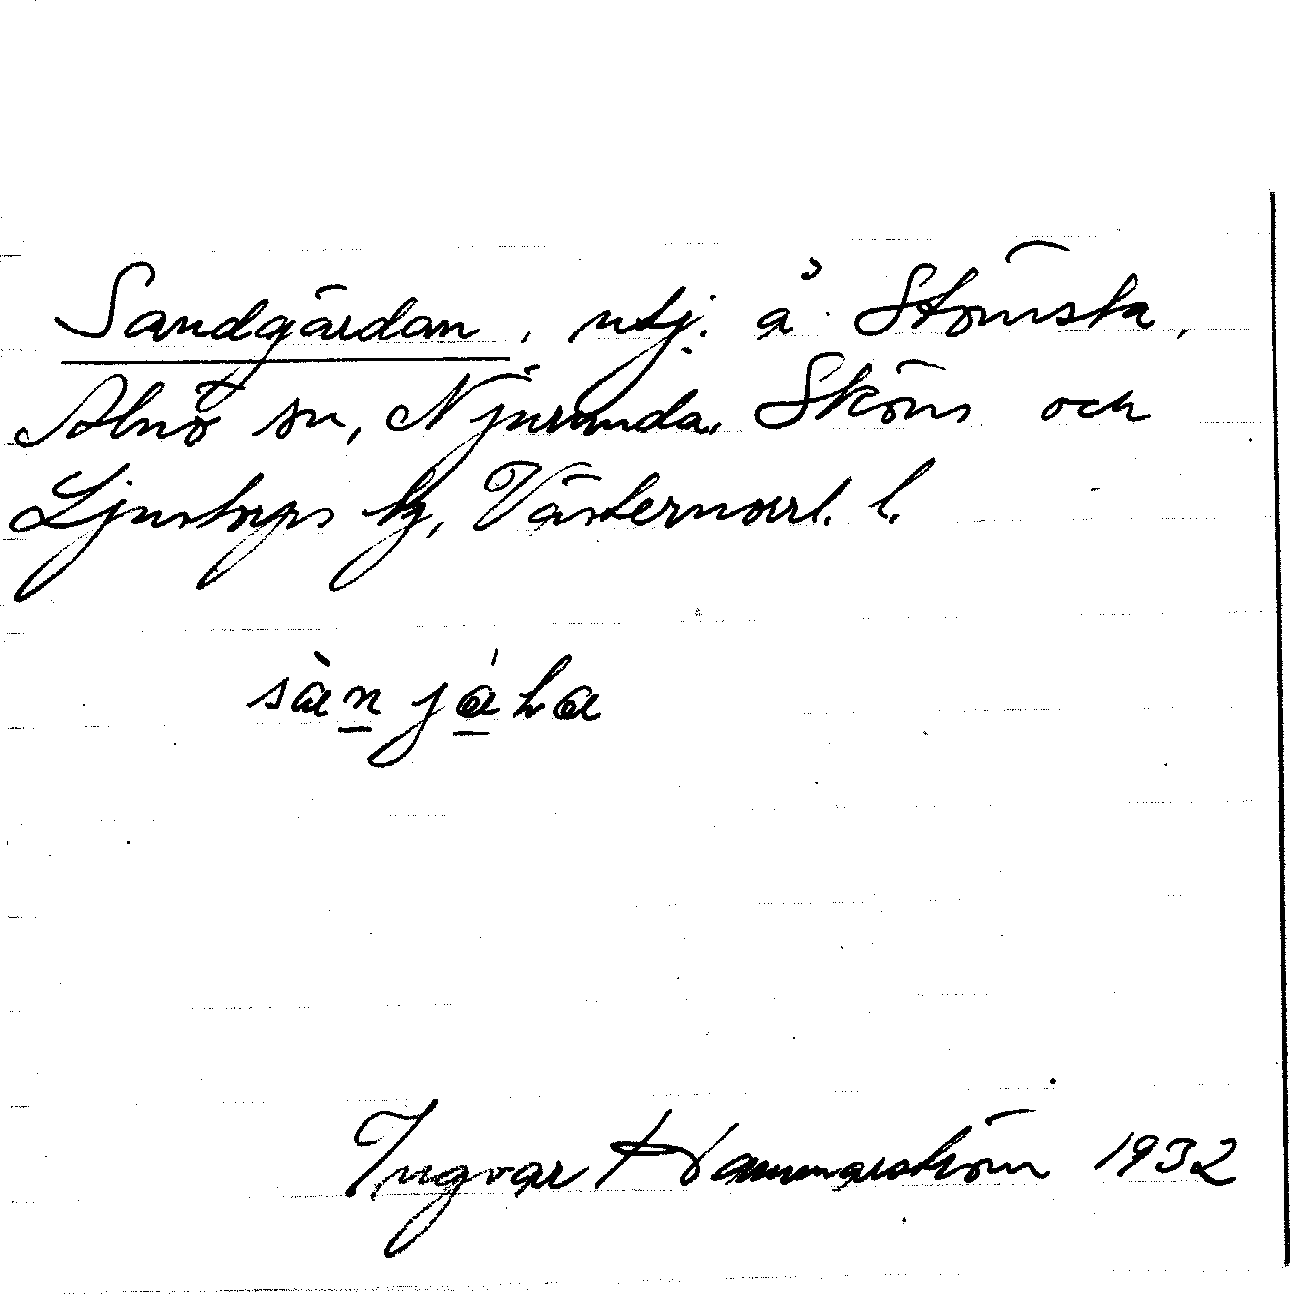 Sandgärdan, utj. å Stömsta,
Alnö sn, Njurunda, Sköns och
Ljustorps tg, Västernorrl. l.
sàn jáḷa
Ingvar Hammarström 1932